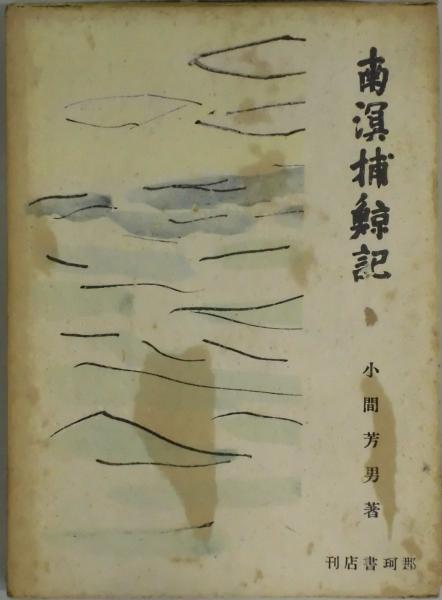 南溟捕鯨記
小間芳男著
刊店書珂那